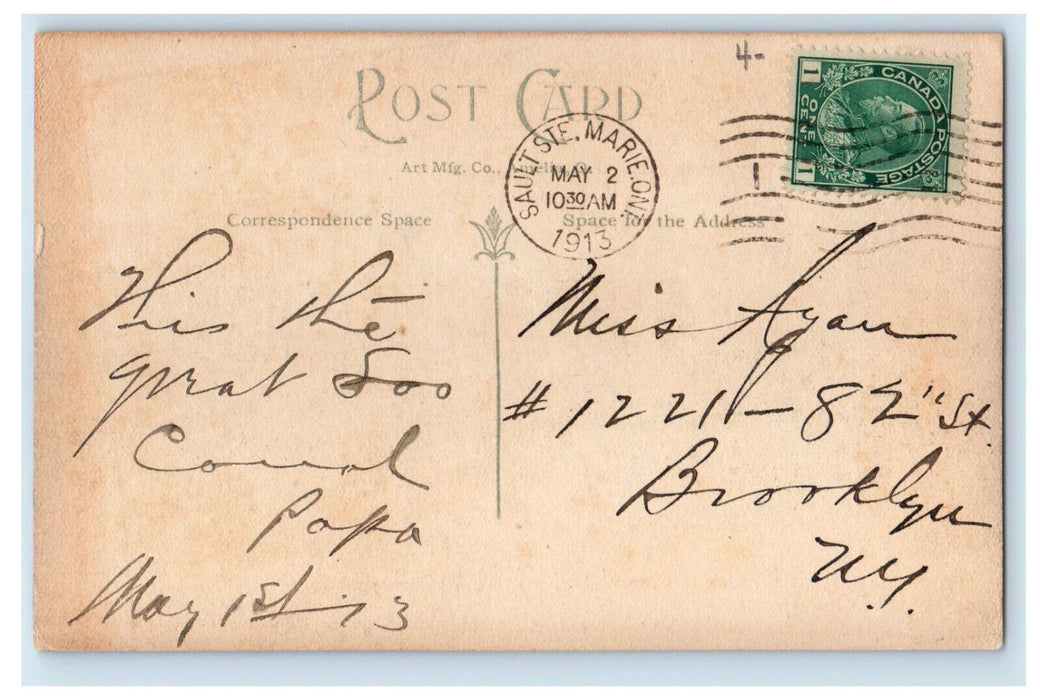 4-
POST CARD
CANADA POSTAGE
1 ONE CENT 1
SAULT STE. MARIE. ONT.
MAY 2
10 30 AM
1913
1
Art Mfg. Co., Amelia, O.
Correspondence Space
Space for the Address
This the
great Soo
Canal
Papa
May 1st 13
Miss Ryan
# 1221 - 82" St.
Brooklyn
N.Y.